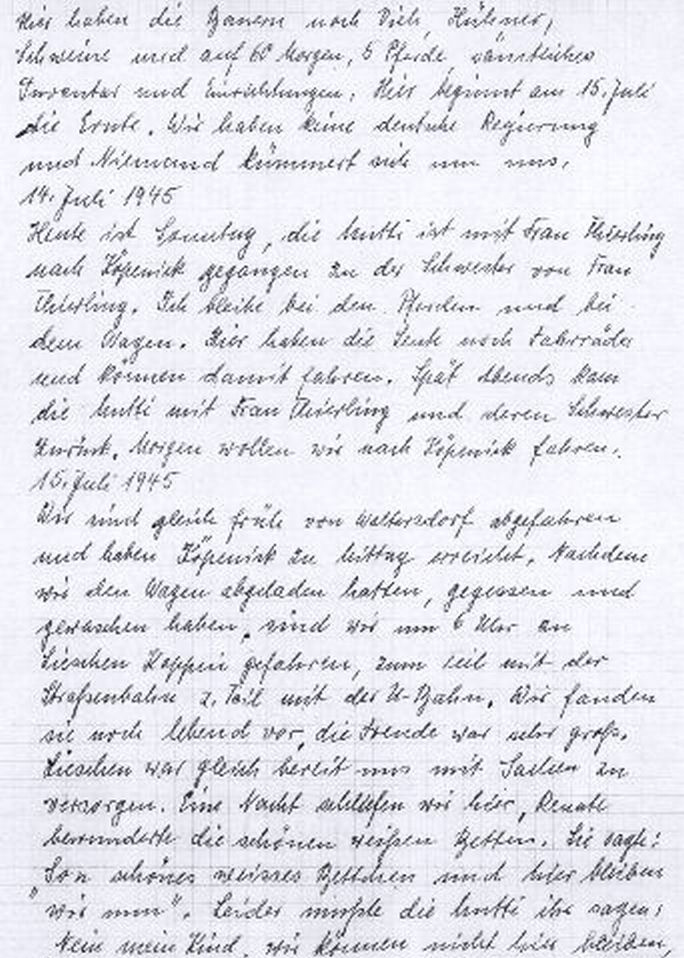 Hier haben die Bauern noch Vieh, Hühner,
Schweine und auf 60 Morgen, 5 Pferde, sämtliches
Inventar und Einrichtungen. Hier beginnt am 15. Juli
die Ernte. Wir haben keine deutsche Regierung
und Niemand kümmert sich um uns.
14. Juli 1945
Heute ist Sonntag, die Mutti ist mit Frau Thierling
nach Köpenick gegangen zu der Schwester von Frau
Thierling. Ich bleibe bei den Pferden und bei
dem Wagen. Hier haben die Leute noch Fahrräder
und können damit fahren. Spät abends kam
die Mutti mit Frau Thierling und deren Schwester
zurück. Morgen wollen wir nach Köpenick fahren.
15. Juli 1945
Wir sind gleich früh von Waltersdorf abgefahren
und haben Köpenick zu Mittag erreicht. Nachdem
wir den Wagen abgeladen hatten, gegessen und
gewaschen haben, sind wir um 6 Uhr an
Lieschen Koppen gefahren, zum teil mit der
Straßenbahn z. Teil mit der U-Bahn. Wir fanden
sie noch lebend vor, die Freude war sehr groß.
Lieschen war gleich bereit uns mit Sachen zu
versorgen. Eine Nacht schliefen wir hier, Renate
bewunderte die schönen weißen Betten. Sie sagte:
"Son schönes weisses Bettchen und hier bleiben
wir nun". Leider mußte die Mutti ihr sagen:
Nein mein Kind, wir können nicht hier bleiben,